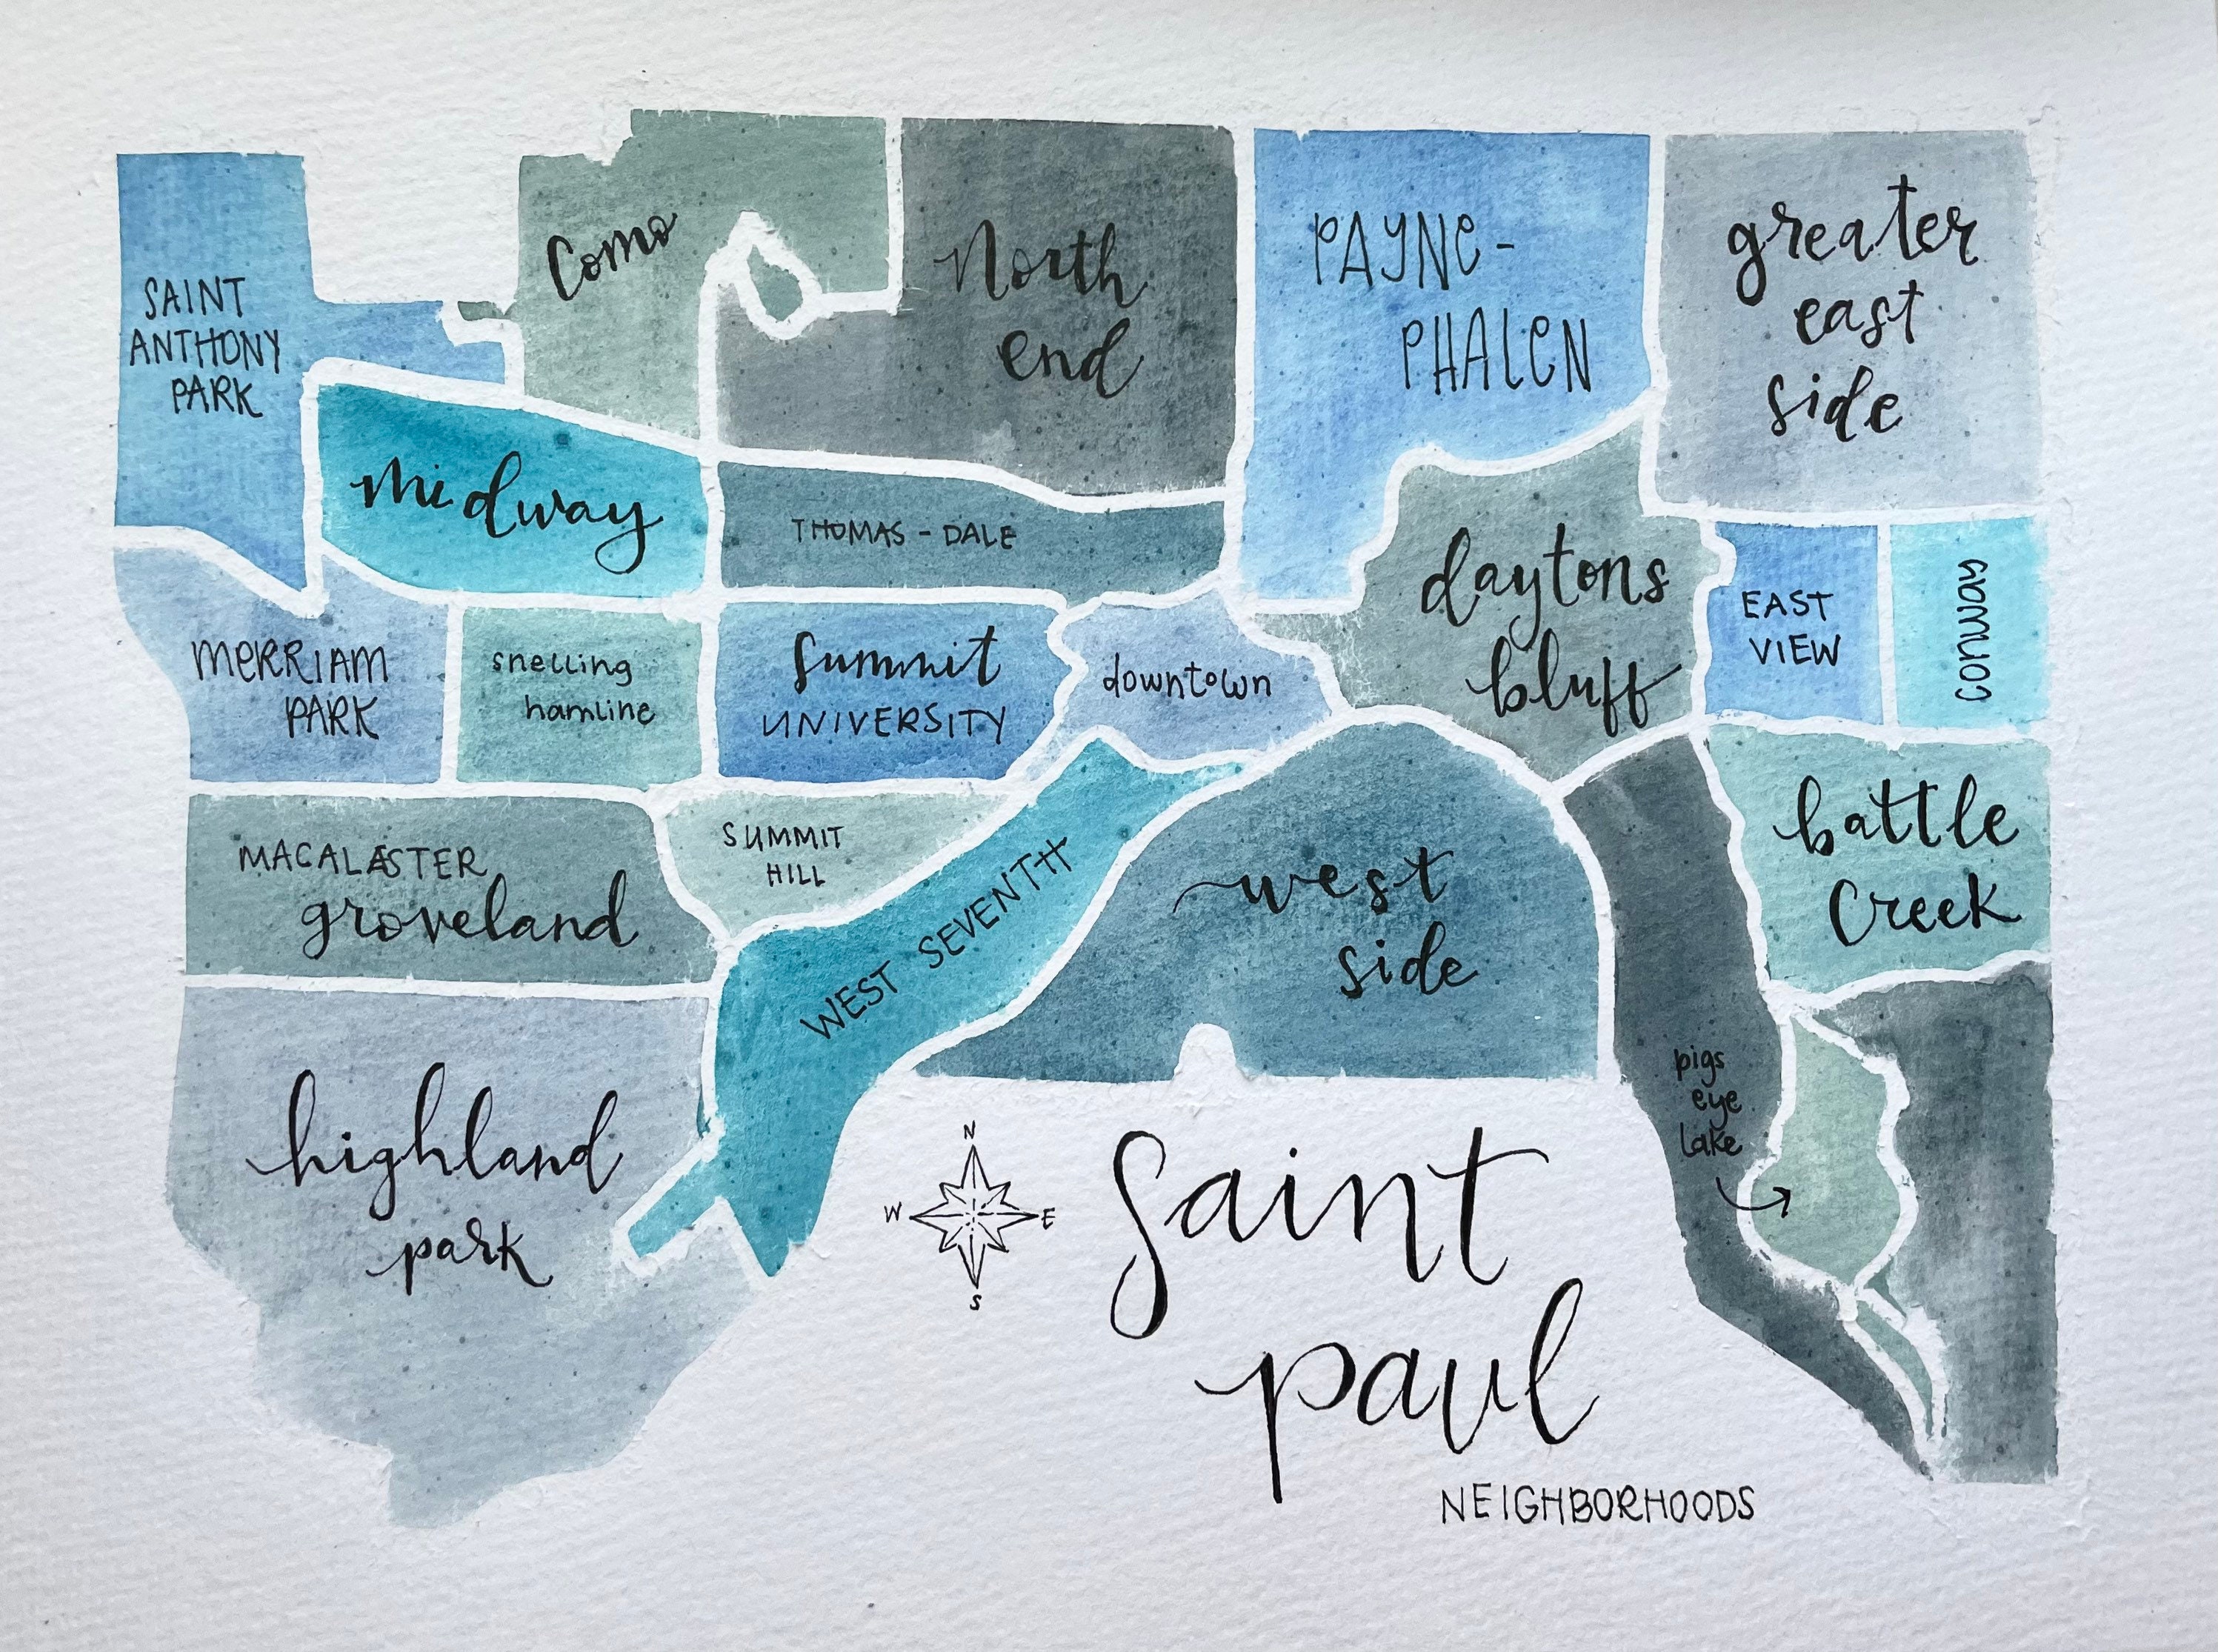 Como
SAINT
ANTHONY
PARK
North
end
PAYNE-
PHALEN
greater
east
side
midway
THOMAS - DALE
daytons
bluff
EAST
VIEW
conway
MERRIAM
PARK
snelling
hamline
Summit
UNIVERSITY
downtown
MACALASTER
groveland
SUMMIT
HILL
WEST SEVENTH
west
side
battle
Creek
highland
park
pigs
eye
lake
N
W
E
S
Saint
paul
NEIGHBORHOODS